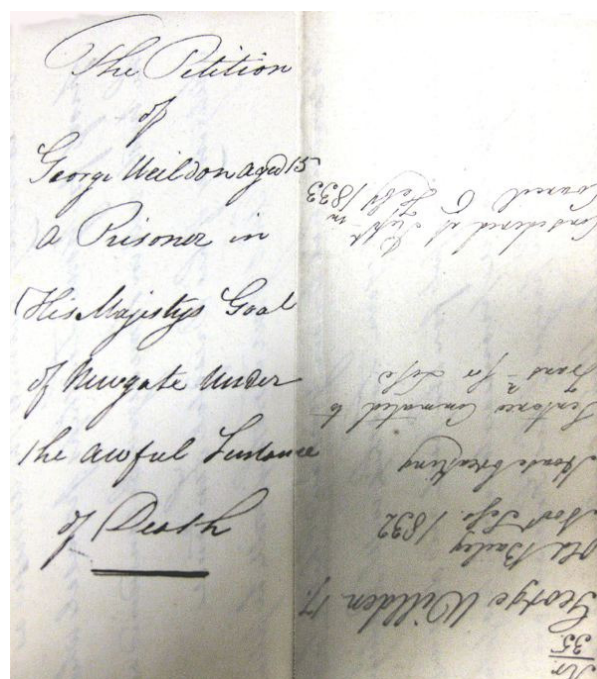 The Petition
of
George Weildon aged 15
a Prisoner in
His Majestys Goal
of Newgate Under
the awful Sentance
of Death
35
George Willdon 17.
Old Bailey
Novr Sess. 1832
Housebreaking
Sentence Commuted to
Trans. for Life
Considered at
Council 6 Feby 1833